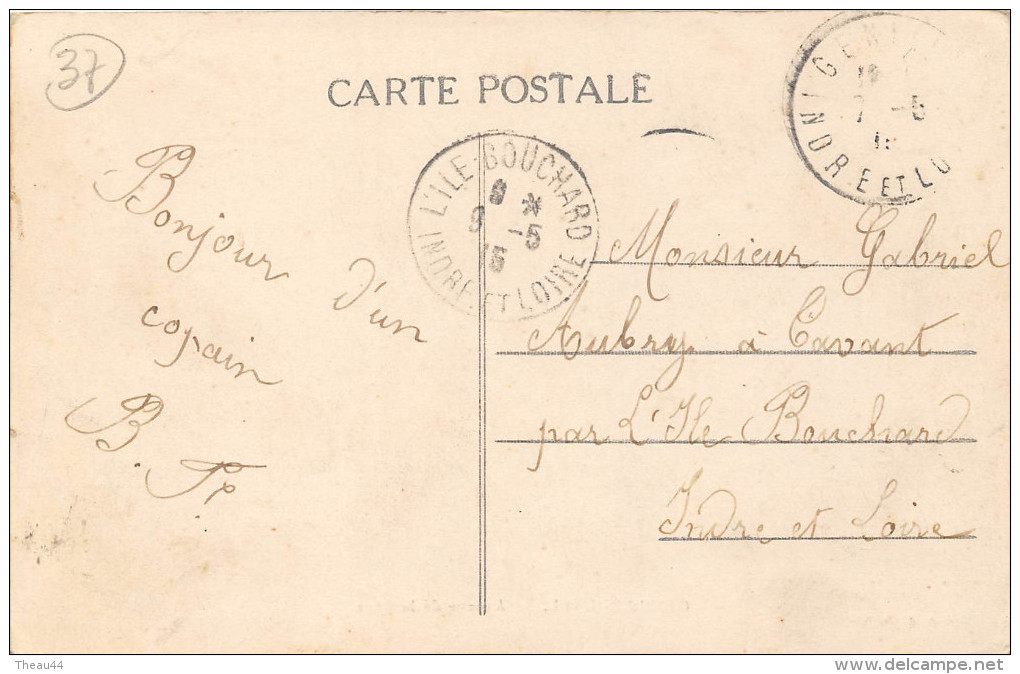 37
CARTE POSTALE
GENI
7 -5
INDRE ET LO
L'ILE-BOUCHARD
8 *
8 -5
15
INDRE ET LOIRE
Bonjour
d'un
copain
B. F.
Monsieur Gabriel
Aubry à Cavant
par L'Ile Bouchard
Indre et Loire
Theau44
delcampe.net